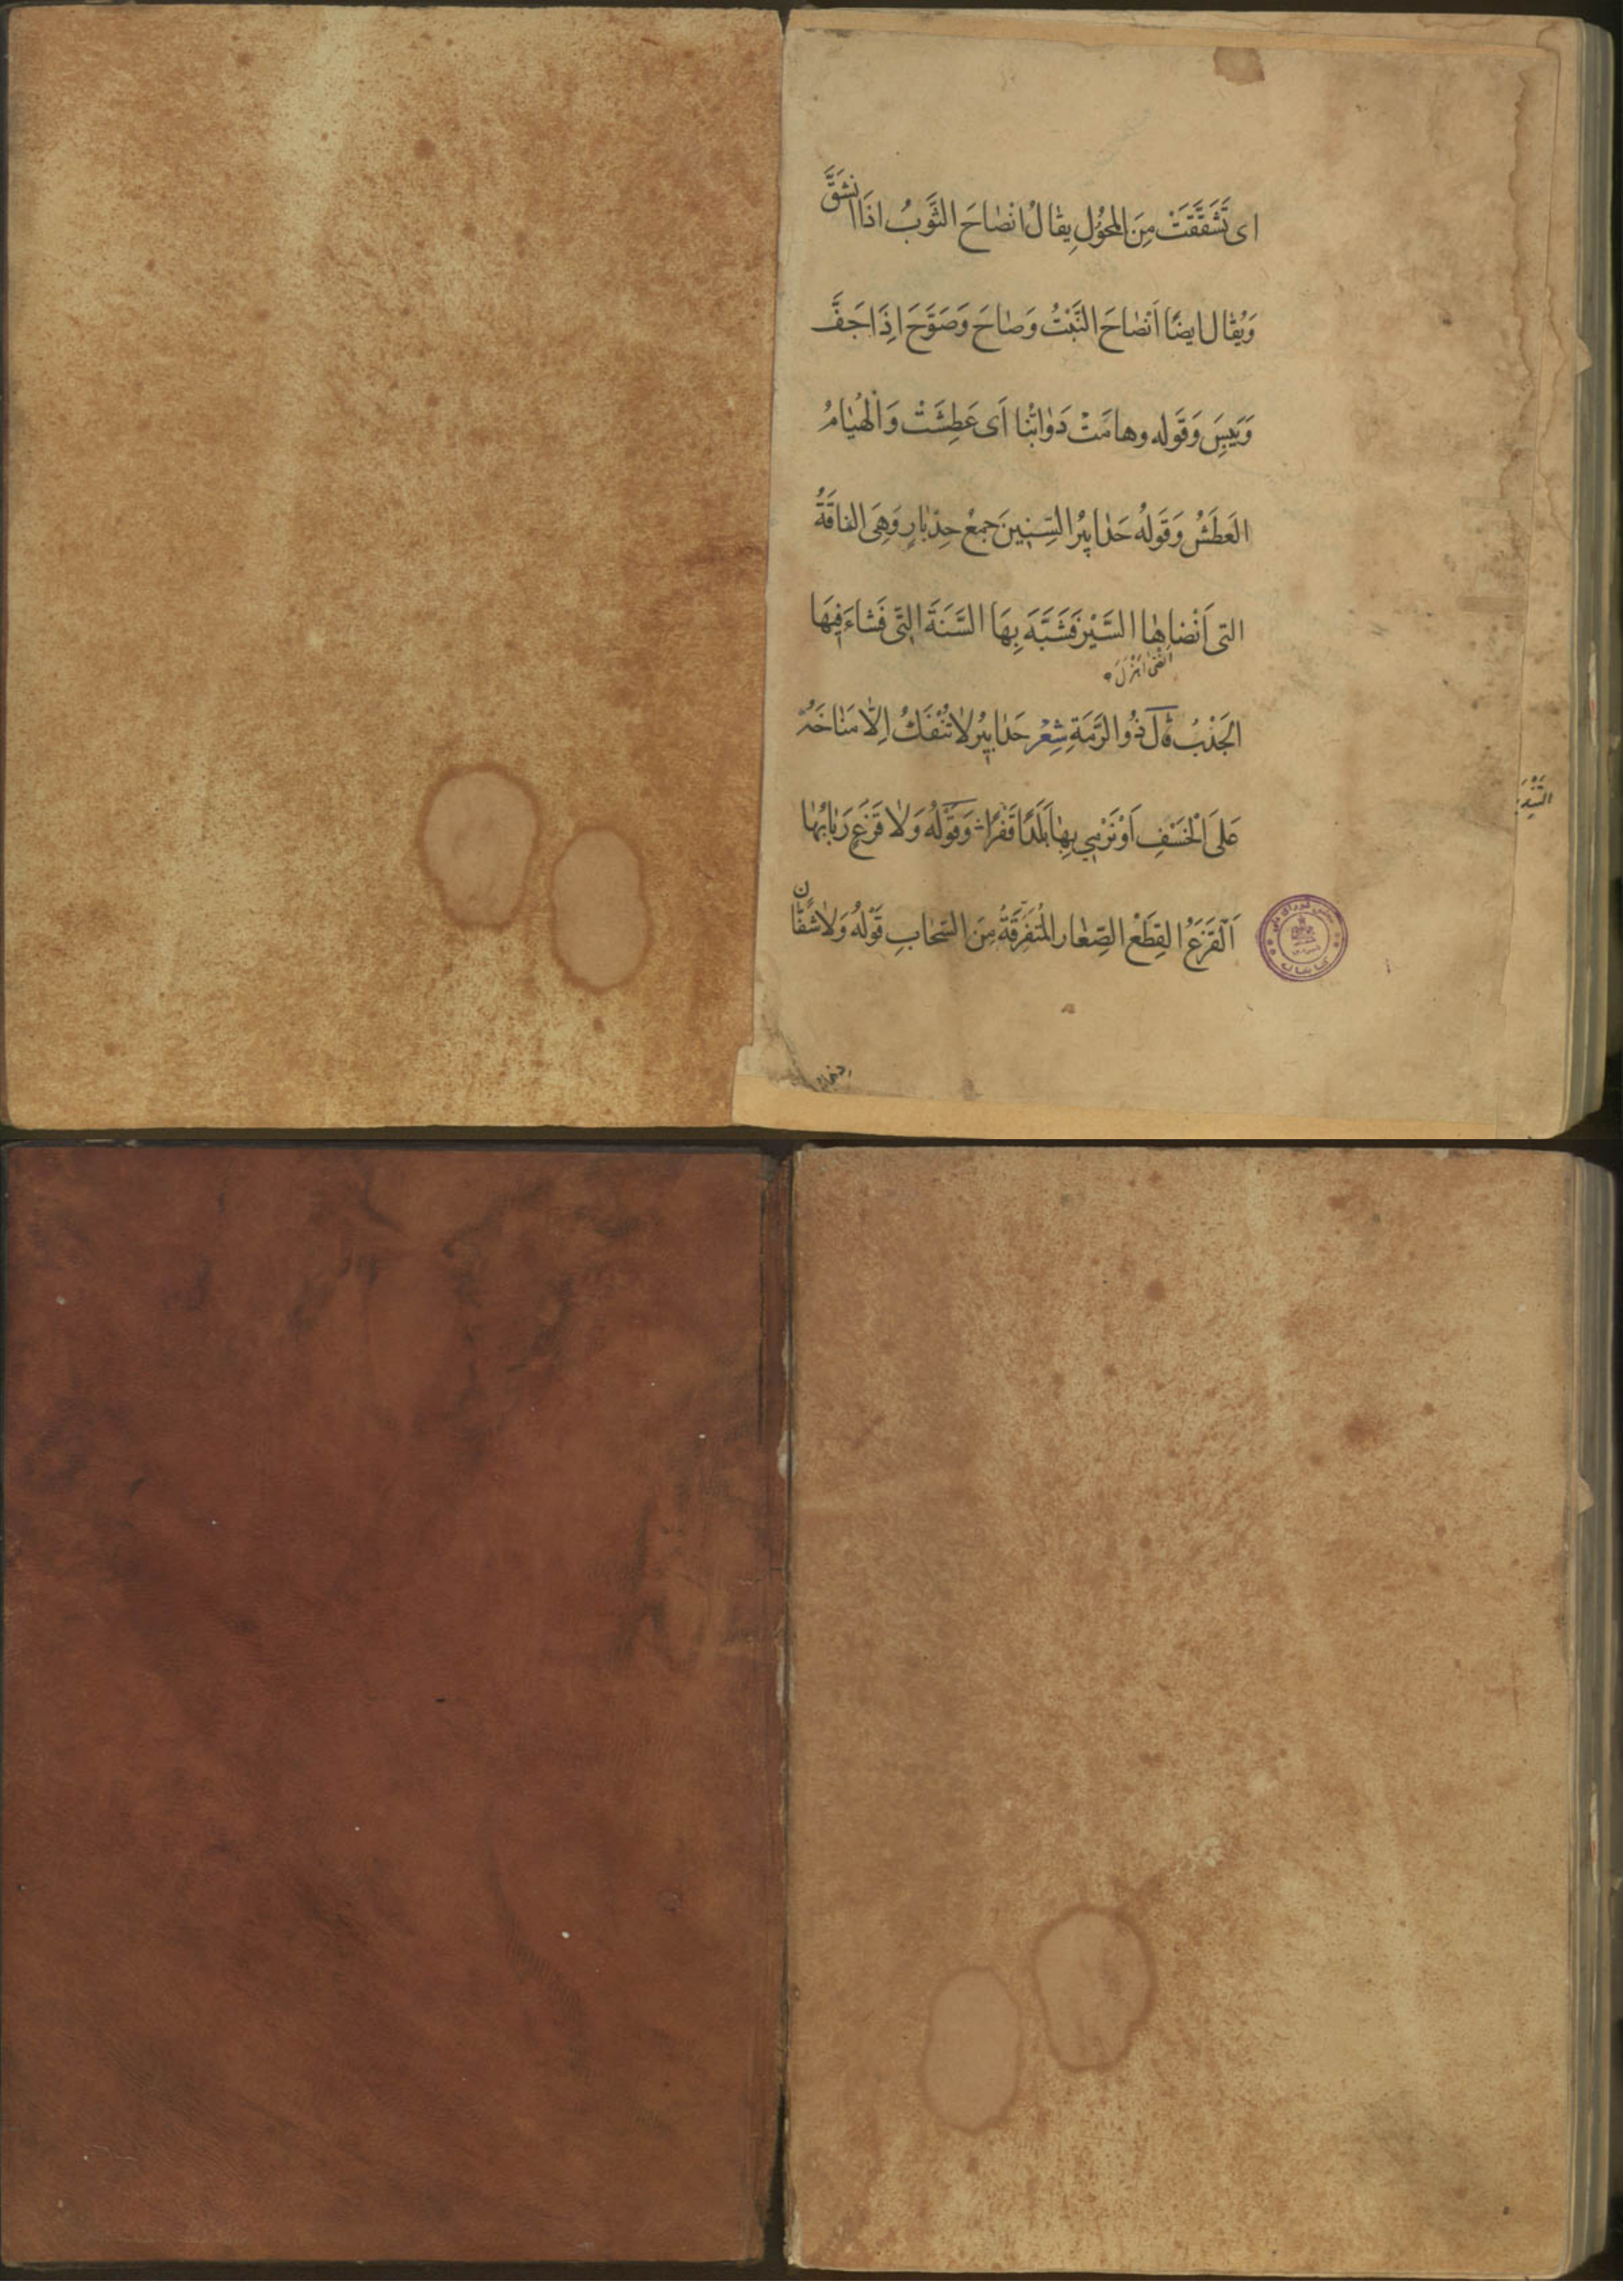 اى تَشَقَّقَتْ مِنَ المُحُوُلِ يقالُ انْصَاحَ الثَّوبُ اذَا انْشَقَّ
وَيُقال ايضًا اَنْصَاحَ النَّبْتُ وَصَاحَ وَصَوَّحَ اِذَا جَفَّ
وَيَبِسَ وَقَوله وهامَتْ دَوابُّنا اَى عَطِشَتْ وَالْهُيَامُ
العَطَشُ وَقَولُهُ حَدَابِيرُ السِّنِينَ جمعُ حِدْبَارٍ وَهِىَ الناقَةُ
التى اَنْضاهَا السَّيْرُ فَشَبَّهَ بِهَا السَّنَةَ الَّتى فَشَاءَ فِيهَا
الجَدْبُ قال ذُو الرَّمَةِ شِعْرٌ حَدَابِيرُ لا تَنْفَكُّ اِلّا مَنَاخَةً
عَلَى الْخَسْفِ اَوْ نَرْمِي بِهَا بَلَدًا قَفْرًا وَقَوْلُهُ وَلا قَزَعٍ رَبَابُهَا
اَلْقَزَعُ القِطَعُ الصِّغار المُتَفَرِّقَةُ مِنَ السَّحَابِ قَوْلُهُ وَلا شَفَّانٍ